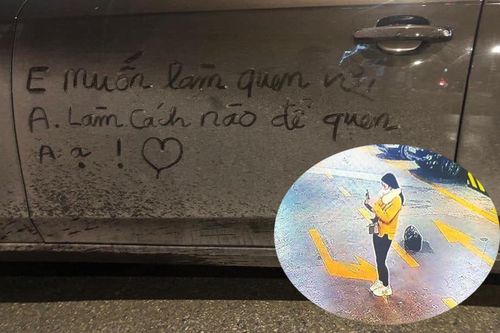 E muốn làm quen với
A. Làm cách nào để quen
A ạ ! ♡